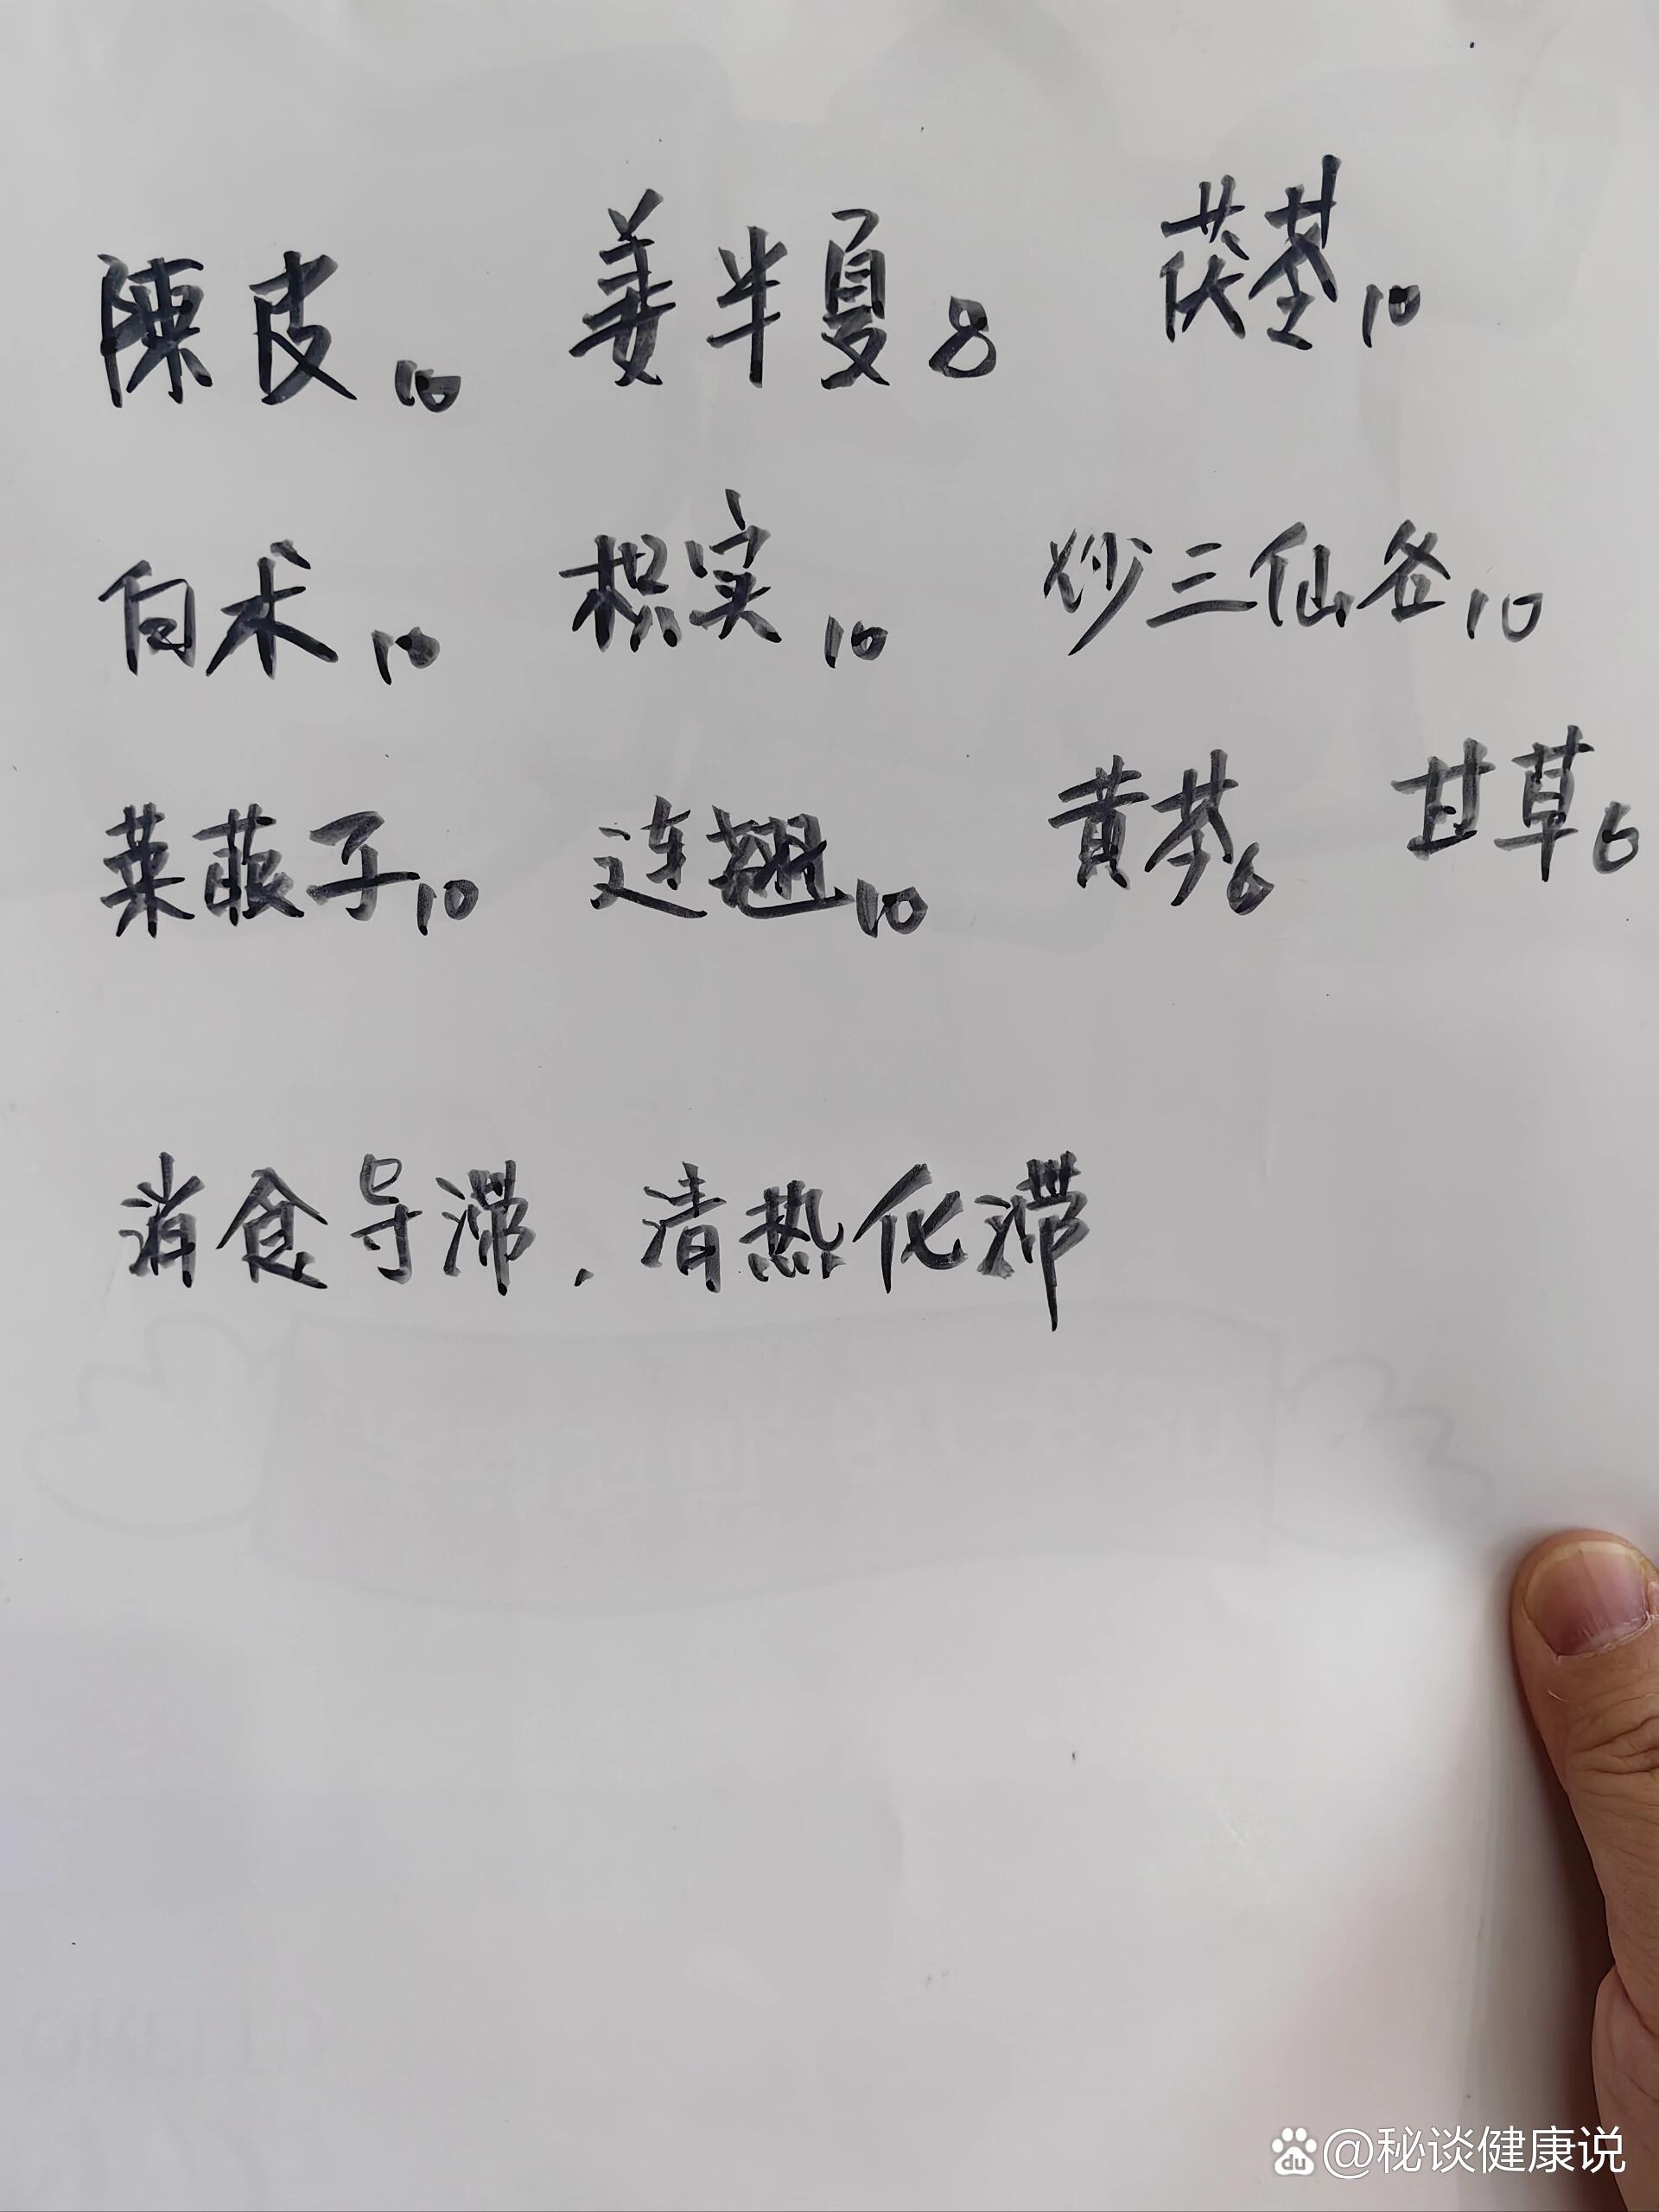 陳皮10 姜半夏8 茯苓10
白术10 枳实10 炒三仙各10
莱菔子10 连翘10 黄芩6 甘草6
消食导滞,清热化滞
du @秘谈健康说